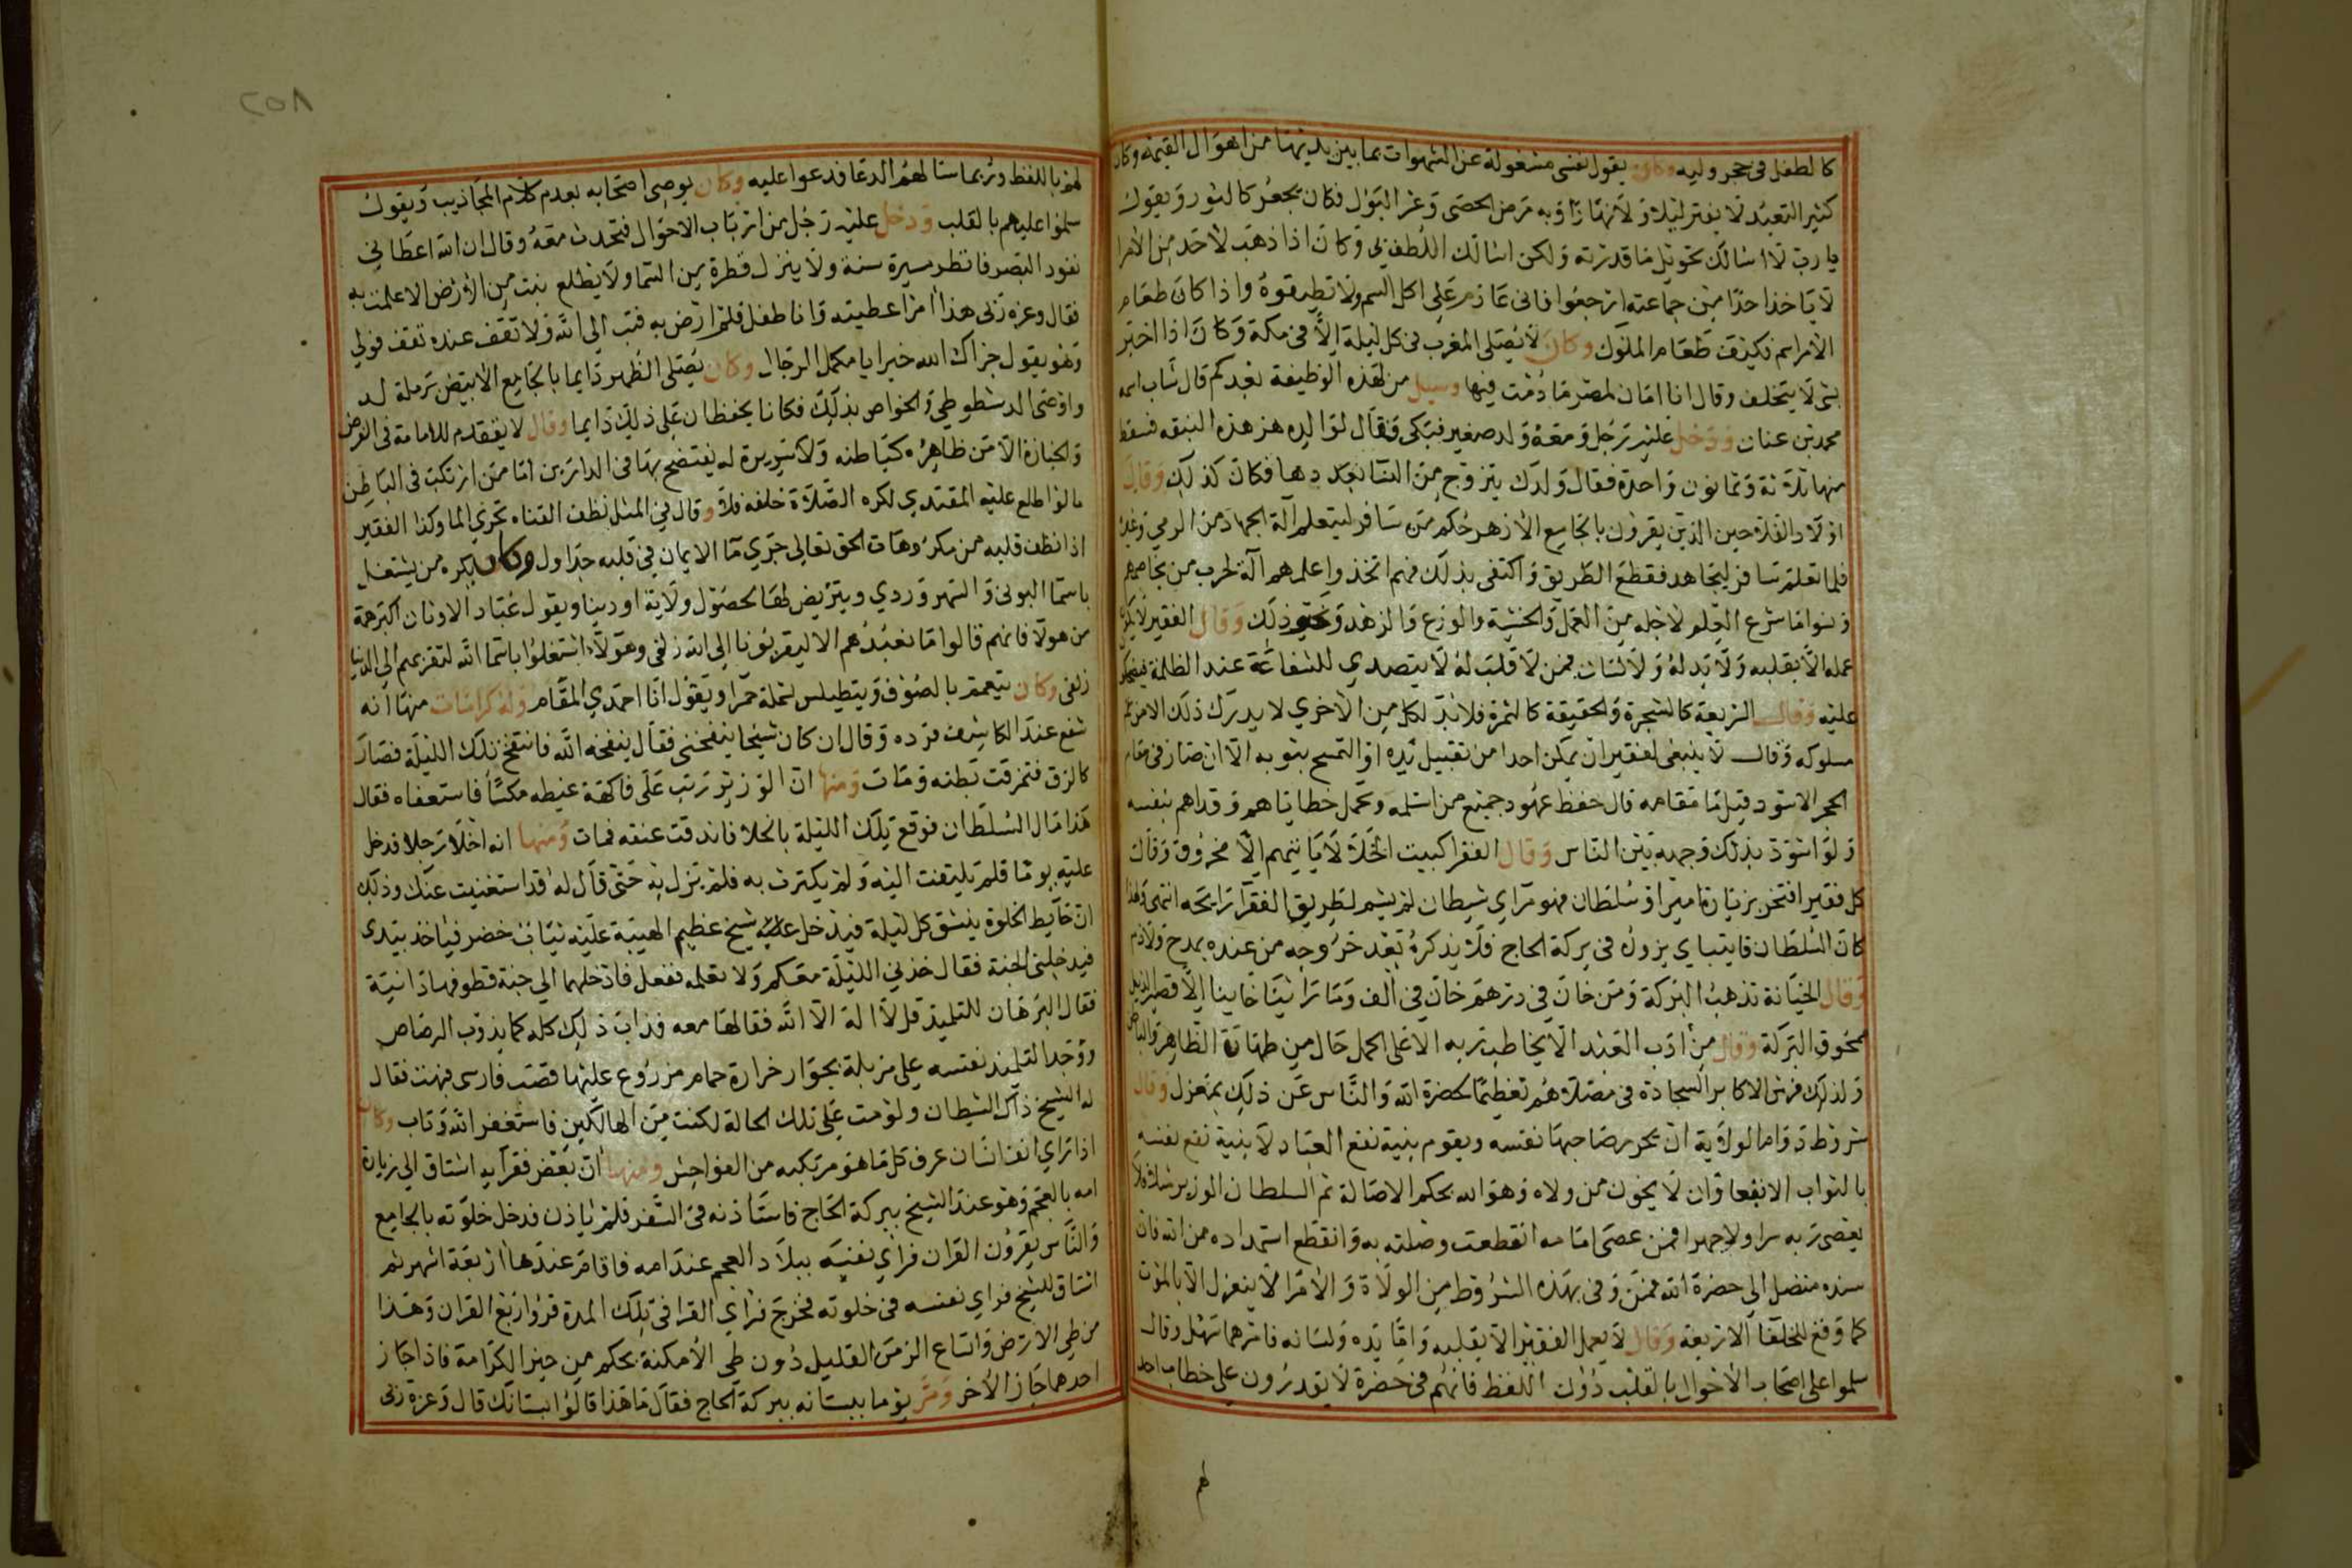 كالطفل في حجر وليه وكان يقول نفسي مشغولة عن الشهوات بما بين يديها من اهوال القيمه وكان
كثير التعبد لا يفتر ليلا ولا نهارا وبه مرض الحصى وعز البول فكان يجعر كالثور ويقول
يا رب لا اسالك تحويل ما قدرته ولكن اسالك اللطف بي وكان اذا ذهب لاحد من الامرا
لا ياخذ احدا من جماعته ارجعوا فاني عازم على اكل السم ولا تطيقوه واذا كان طعام
الامراسم فكيف طعام الملوك وكان لا يصلى المغرب في كل ليلة الا في مكة وكان اذا اخبر
بشى لا يتخلف وقال انا امان لمصر ما دمت فيها وسيل من لهذه الوظيفة بعدكم قال شاب اسمه
محمد بن عنان ودخل عليه رجل ومعه ولد صغير فبكى فقال لوالده هز هذه النبقه فسقط
منها ثلاثة وثمانون واحدة فقال ولدك يتزوج من النسا بعددها فكان كذلك وقال
اولاد الفلاحين الذين يقرون بالجامع الازهر حكم من سافر ليتعلم آلة الجهاد من الرمي وغيره
فلما تعلم سافر ليجاهد فقطع الطريق واكتفى بذلك فهم اتخذوا علمهم آلة لحرب من يخاصمهم
ونسوا ما شرع العلم لاجله من العمل والخشية والورع والزهد ونحو ذلك وقال الفقير لا يكون
عمله الا بقلبه ولا يد له ولا لسان فمن لا قلب له لا يتصدى للشفاعة عند الظلمة
عليه وقال الشريعة كالشجرة والحقيقة كالثمرة فلا بد لكل من الاخرى لا يدرك ذلك الا من تم
سلوكه وقال لا ينبغي لفقير ان يمكن احدا من تقبيل يده او التمسح بثوبه الا ان صار في مقام
الحجر الاسود قيل ما مقامه قال حفظ عهود جميع من استلمه وتحمل خطاياهم وفداهم بنفسه
ولو اسود بذلك وجهه بين الناس وقال الفقرا كبيت الخلا لا ياتيهم الا محروق وقال
كل فقير افتخر بزيارة امير او سلطان فهو مراي شيطان لم يشم لطريق الفقرا رايحه انتهى ولهذا
كان السلطان قايتباي يزوره في بركة الحاج فلا يذكره بعد خروجه من عنده بمدح ولا ذم
وقال الخيانة تذهب البركة ومن خان في درهم خان في الف وما راينا خاينا الا قصير الذيل
ممحوق البركة وقال من ادب العبد الا يخاطب ربه الا على اكمل حال من طهارة الظاهر والباطن
ولذلك فرش الاكابر السجادة في مصلاهم تعظيما لحضرة الله والناس عن ذلك بمعزل وقال
شروط دوام الولاية ان يحرر صاحبها نفسه ويقوم بنية نفع العباد لا بنية نفع نفسه
بالثواب الا تبعا وان لا يخون من ولاه وهو الله بحكم الاصالة ثم السلطان الوزير مثلا فلا
يعصى ربه سرا ولا جهرا فمن عصى امامه انقطعت وصلته به وانقطع استمداده من الله فان
سنده متصل الى حضرة الله فمن وفى بهذه الشروط من الولاة والامرا لا ينعزل الا بالموت
كما وقع للخلفا الاربعة وقال لا يعمل الفقير الا بقلبه واما يده ولسانه فامرهما سهل وقال
سلموا على اصحاب الاحوال بالقلب دون اللفظ فانهم في حضرة لا يقدرون على خطاب احد
لهم
٢٥٨
لهم باللفظ وربما سالهم الدعا فدعوا عليه وكان يوصي اصحابه بعدم كلام المجاذيب ويقول
سلموا عليهم بالقلب ودخل عليه رجل من ارباب الاحوال فتحدث معه وقال ان الله اعطاني
نفود البصر فانظر مسيرة سنة ولا ينزل قطرة من السما ولا يطلع نبت من الارض الا علمت به
فقال وعزة ربى هذا امر اعطيته وانا طفل فلم ارض به فتب الى الله ولا تقف عنده تقف فولي
وهو يقول جزاك الله خيرا يا مكمل الرجال وكان يصلى الظهر دايما بالجامع الابيض برملة لد
واوصى الدشطوطي والخواص بذلك فكانا يحفظان على ذلك دايما وقال لا يتقدم للامامة في الفرض
والجنازة الا من ظاهره كباطنه ولا سريرة له يفتضح بها في الدارين اما من ارتكب في الباطن
ما لو اطلع عليه المقتدي لكره الصلاة خلفه فلا وقال في المثل نظف القناه تجري الما وكذا الفقير
اذا نظف قلبه من مكروهات الحق تعالى جرى ما الايمان في قلبه جداول وكان يكره من يشتغل
باسما البونى والسهروردي ويتريض لها لحصول ولاية او دينا ويقول عباد الاوثان اكبر همة
من هولا فانهم قالوا ما نعبدهم الا ليقربونا الى الله زلفى وهولا اشتغلوا باسما الله لتقربهم الى الدنيا
زلفى وكان يتعمم بالصوف ويتطيلس بشملة حمرا ويقول انا احمدي المقام وله كرامات منها انه
شفع عند الكاشف فرده وقال ان كان شيخا ينفخنى فقال ينفخه الله فانتفخ تلك الليلة فصار
كالزق فتمزقت بطنه ومات ومنها ان الوزير رتب على فاكهة غيطه مكسا فاستعفاه فقال
هذا مال السلطان فوقع تلك الليلة بالخلا فاندقت عنقه فمات ومنها انه اخلا رجلا فدخل
عليه يوما فلم يلتفت اليه ولم يكترث به فلم يزل به حتى قال له قد استغنيت عنك وذلك
ان حايط الخلوة ينشق كل ليلة فيدخل عليه شيخ عظيم الهيبة عليه ثياب خضر فياخذ بيدى
فيدخلنى الجنة فقال خذني الليلة معكم ولا تعلمه ففعل فادخلهما الى جنة قطوفها دانية
فقال البرهان للتلميذ قل لا اله الا الله فقالها معه فذاب ذلك كله كما يذوب الرصاص
ووجد التلميذ نفسه على مزبلة بجوار خرارة حمام مزروع عليها قصب فارسى فبهت فقال
له الشيخ ذاك الشيطان ولو مت على تلك الحالة لكنت من الهالكين فاستغفر الله وتاب وكان
اذا راى انف انسان عرف كل ما هو مرتكبه من الفواحش ومنها ان بعض فقرآيه اشتاق الى زيارة
امه بالعجم وهو عند الشيخ ببركة الحاج فاستاذنه في السفر فلم ياذن فدخل خلوته بالجامع
والناس يقرون القران فراى نفسه ببلاد العجم عند امه فاقام عندها اربعة اشهر ثم
اشتاق للشيخ فراى نفسه في خلوته فخرج فراى القرا في تلك المدة قروا ربع القران وهذا
من طي الارض واتساع الزمن القليل دون طي الامكنة بحكم من حيز الكرامة فاذا جاز
احدهما جاز الاخر ومر يوما ببستانه ببركة الحاج فقال ما هذا قالوا بستانك قال وعزة ربى